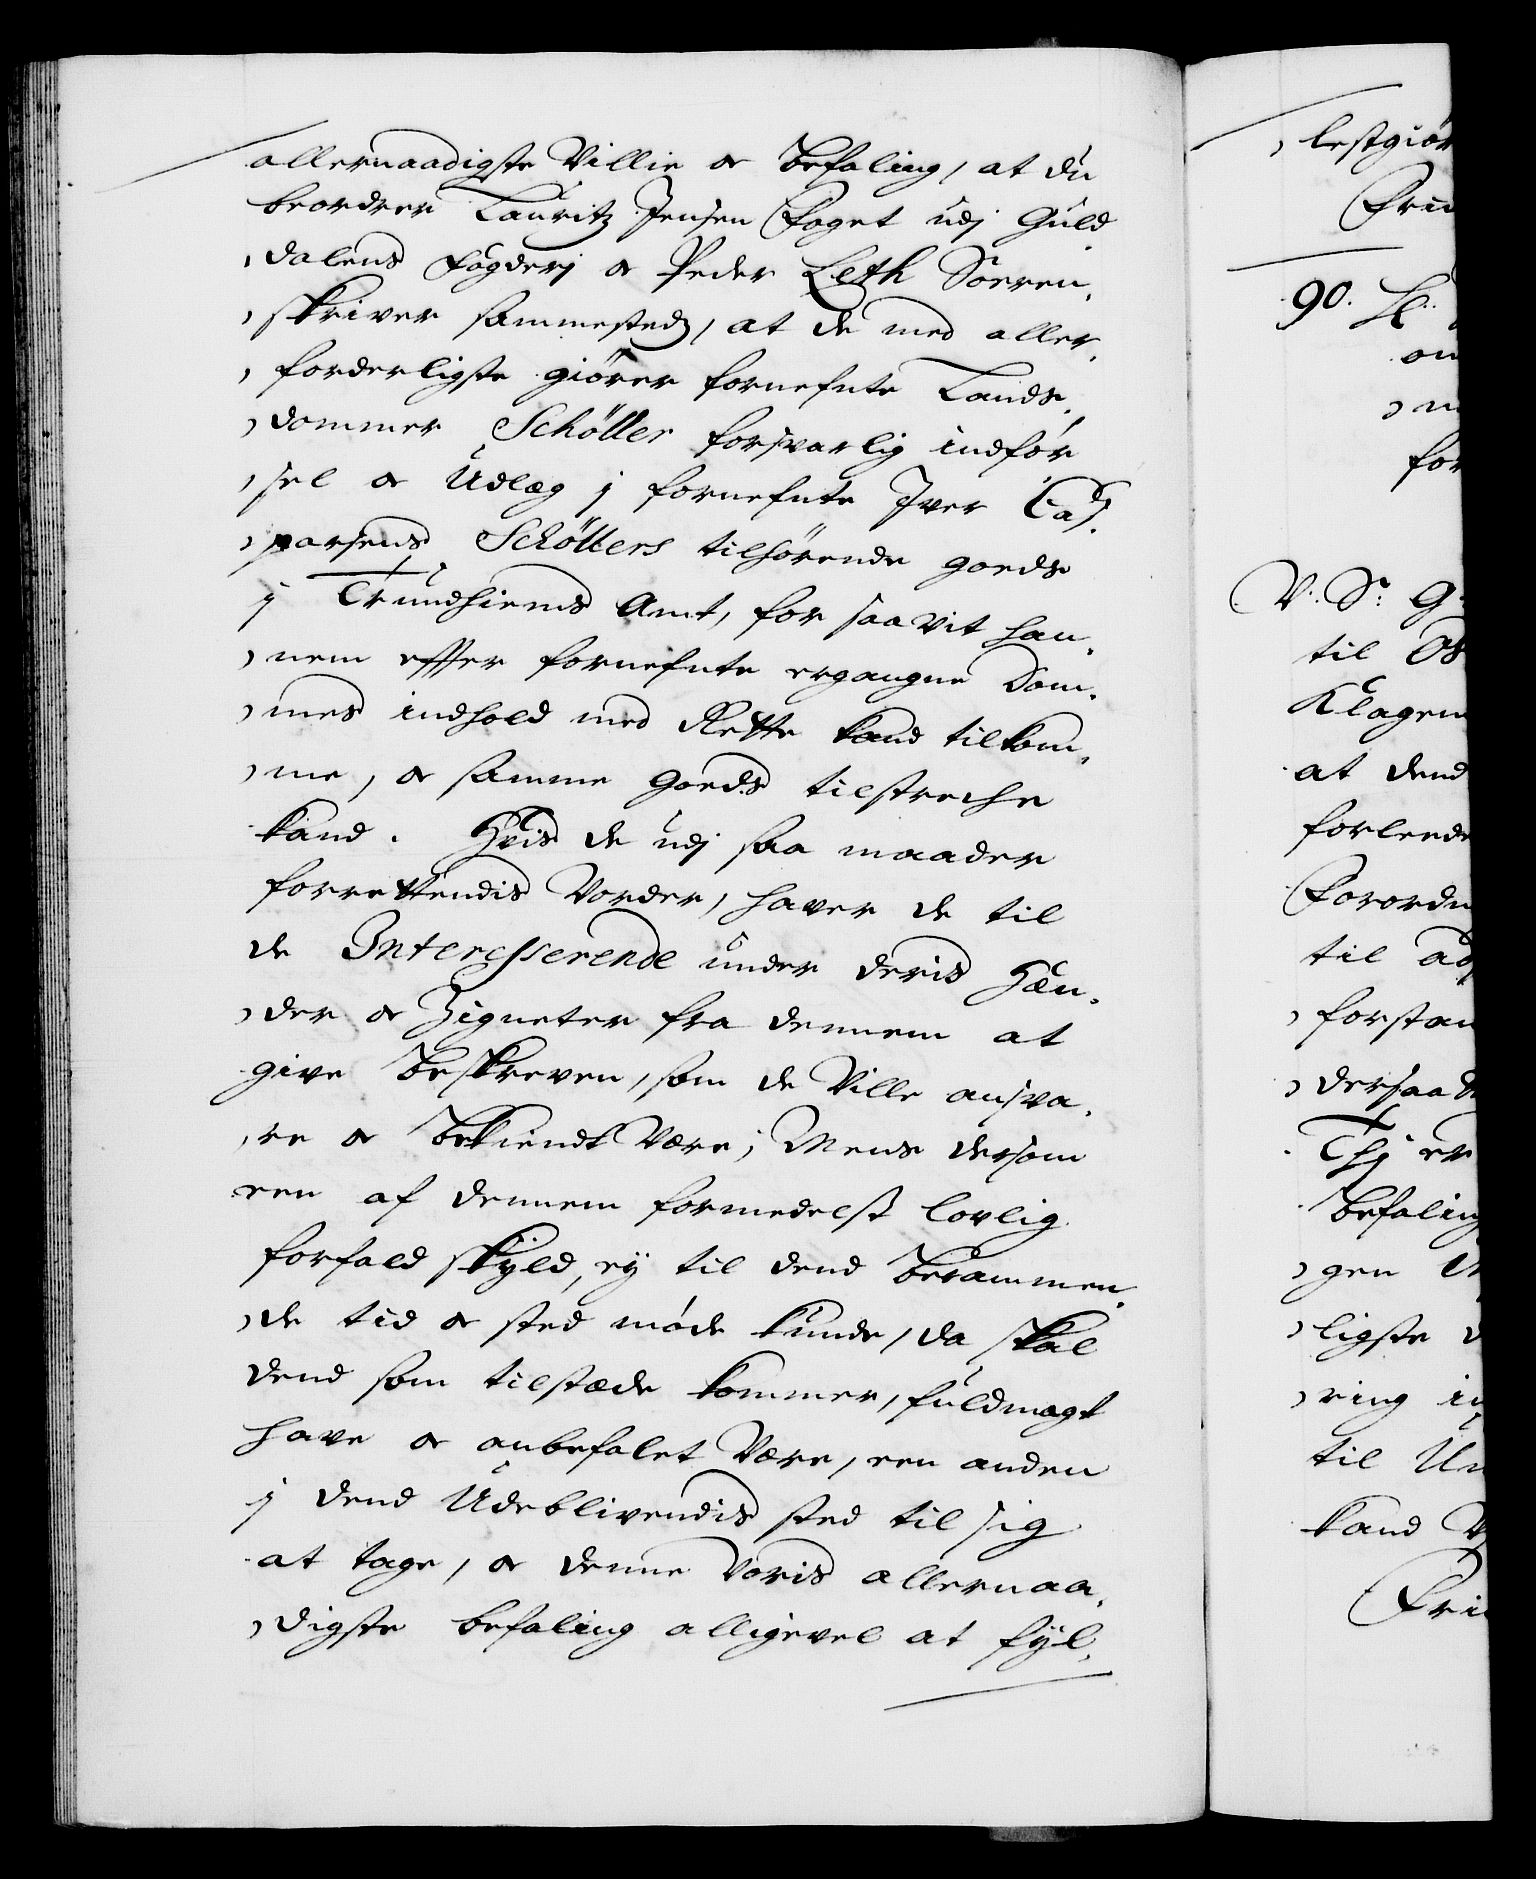 allernaadigste Villie oc befaling, at du
beordrer Lauritz Jensen Foget udj Guld
dalens fogderj oc Peder Leth Soeren,
skriver sammesteds, at de med aller,
forderligste giörer fornefnte Lands,
dommer Schöller forsvarlig indför
sel oc Udlæg j fornefnte Iver Cas,
parsens Schöllers tilhörende goeds
j Trundhiems Amt, for saavit han,
nem effter fornefnte ergangne Dom,
mes indhold med Rette kand tilkom,
me, oc samme goeds tilstreche
kand. Hvis de udj saa maader
forrettendis vorder, haver de til
de Interesserende under deris Hæn,
der oc Zigneter fra dennem at
give beskreven, som de Ville ansva,
re oc bekiendt Være; Mens dersom
een af dennem formedelst lovlig
forfald skyld, ej til dend berammen,
de tid oc sted möde kunde, da skal
dend som tilstæde kommer, fuldmagt
have oc anbefalet Være, een anden
j dend Udeblivendis sted til sig
at tage, oc denne voris allernaa,
digste befaling alligevel at fyl,
lestgiör
90.
om
for
V. Sr. G
til
Klagen
at dend
forleede
Forordn
til
forstan
dersaa
Thj er
befaling
gen
ligste
ring
til
kand